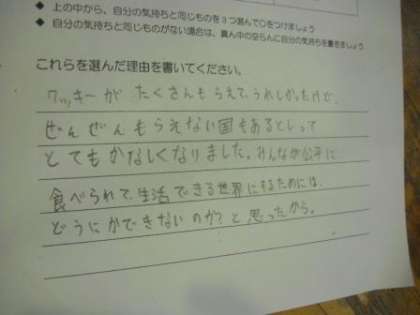 ◆ 上の中から、自分の気持ちと同じものを3つ選んで○をつけましょう
◆ 自分の気持ちと同じものがない場合は、真ん中の空らんに自分の気持ちを書きましょう
これらを選んだ理由を書いてください。
クッキーが たくさんもらえて、うれしかったけど、
ぜんぜんもらえない国もあるとしって
とてもかなしくなりました。みんなが公平に
食べられて、生活できる世界にするためには、
どうにかできないのか?と思ったから。